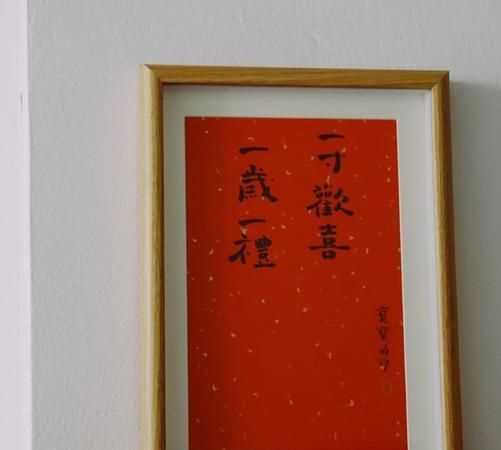 一寸歡喜
一歲一禮